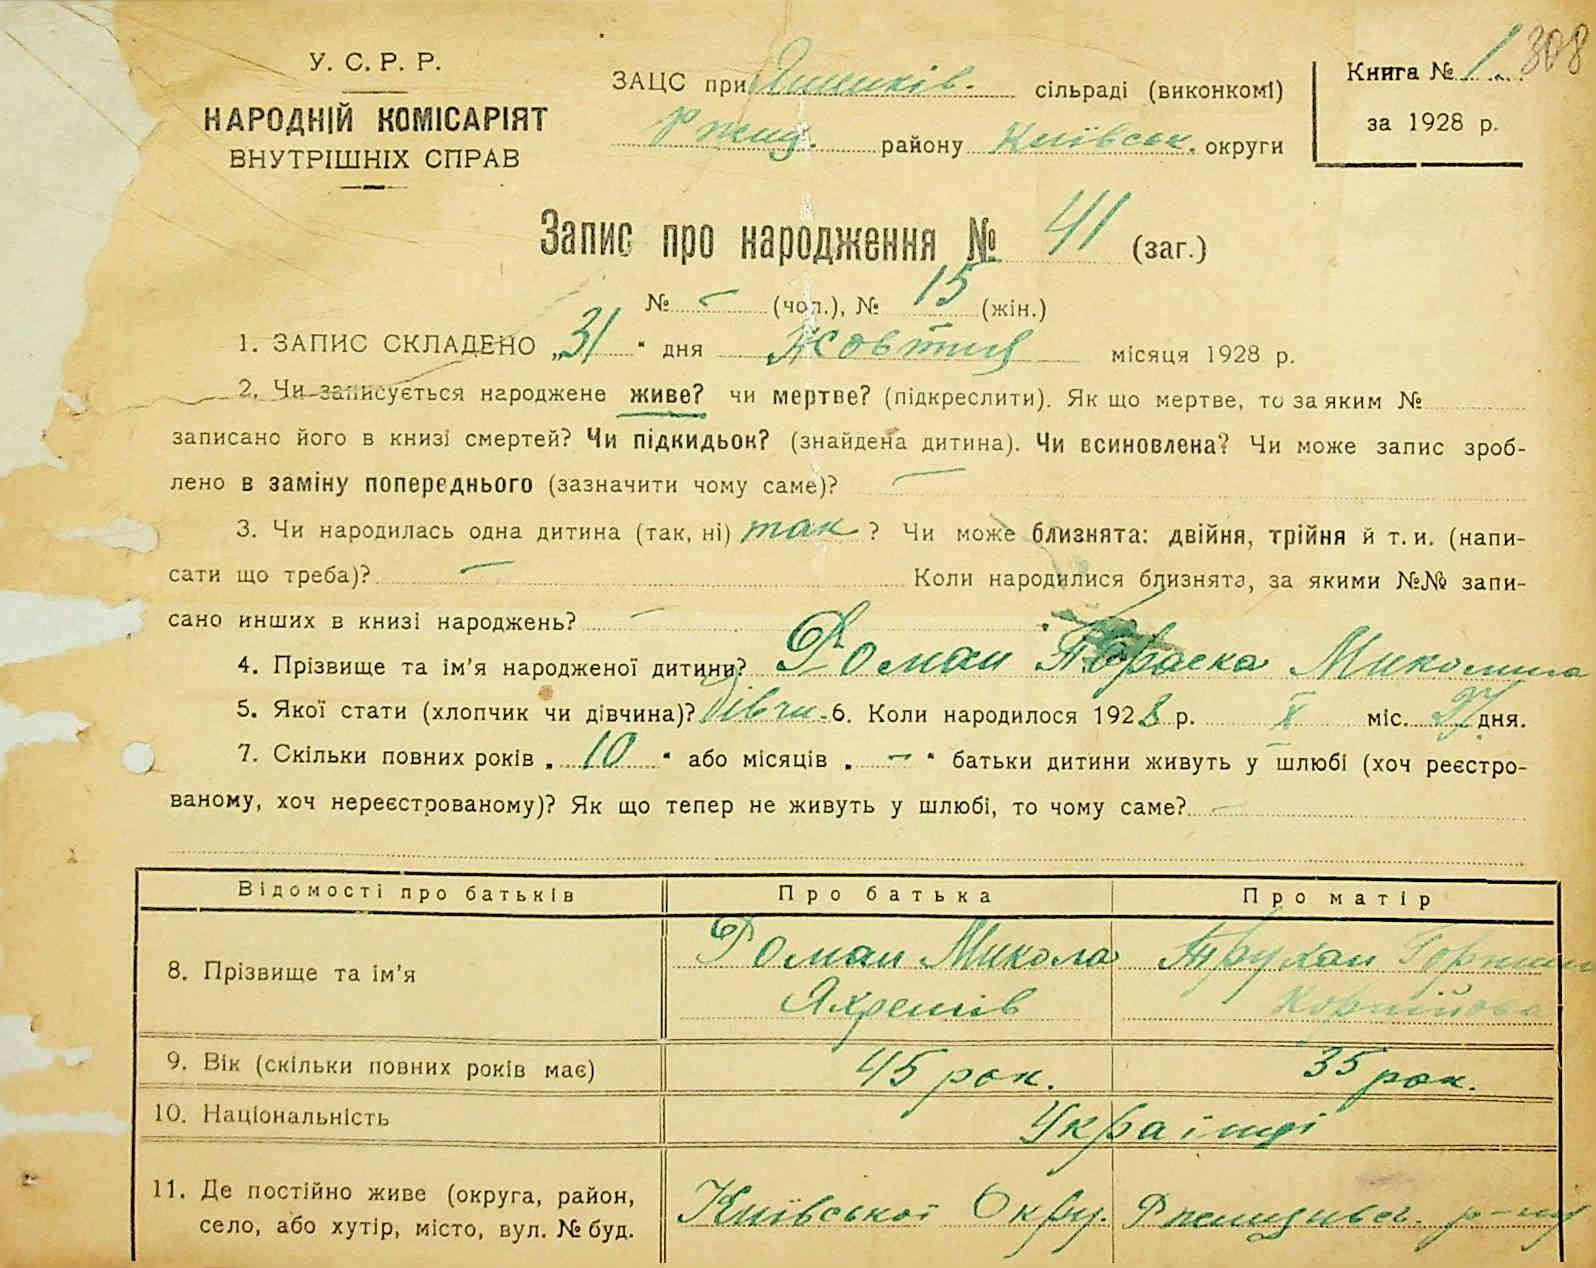 У. С. Р. Р.
НАРОДНІЙ КОМІСАРІЯТ
ВНУТРІШНІХ СПРАВ
ЗАЦС при сільраді (виконкомі)
Ржищ. району Київськ. округи
Книга № 1 308
за 1928 р.
Запис про народження № 41 (заг.)
№ – (чол.), № 15 (жін.)
1. ЗАПИС СКЛАДЕНО „31" дня Жовтня місяця 1928 р.
2. Чи записується народжене живе? чи мертве? (підкреслити). Як що мертве, то за яким №
записано його в книзі смертей? Чи підкидьок? (знайдена дитина). Чи всиновлена? Чи може запис зроб-
лено в заміну попереднього (зазначити чому саме)? –
3. Чи народилась одна дитина (так, ні) так ? Чи може близнята: двійня, трійня й т. и. (напи-
сати що треба)? – Коли народилися близнята, за якими №№ запи-
сано инших в книзі народжень? –
4. Прізвище та ім'я народженої дитини? Роман Параска Миколина
5. Якої стати (хлопчик чи дівчина)? дівчи. 6. Коли народилося 1928 р. X міс. 27 дня.
7. Скільки повних років „10" або місяців „–" батьки дитини живуть у шлюбі (хоч реєстро-
ваному, хоч нереєстрованому)? Як що тепер не живуть у шлюбі, то чому саме? –
Відомості про батьків Про батька Про матір
8. Прізвище та ім'я Роман Микола Трухан
9. Вік (скільки повних років має) 45 рок. 35 рок.
10. Національність Українці
11. Де постійно живе (округа, район,
село, або хутір, місто, вул. № буд. Київської Окру. Ржищивсь. р-ну